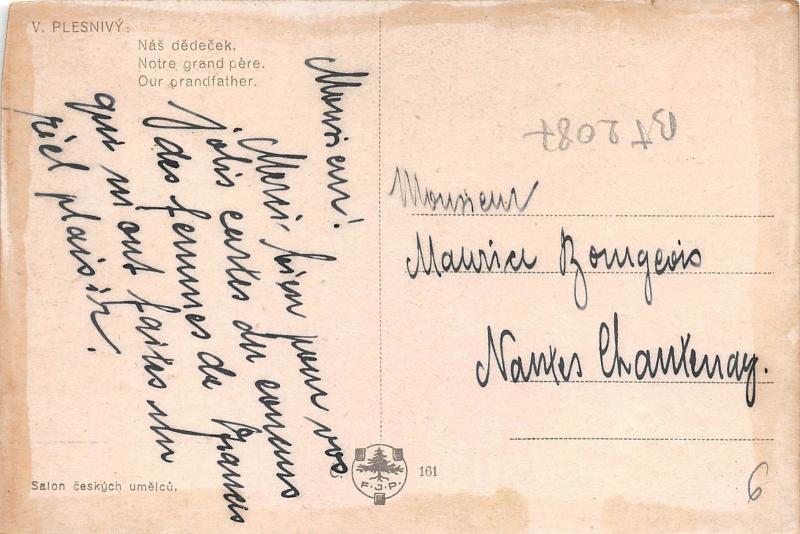 V. PLESNIVÝ:
Náš dědeček.
Notre grand père.
Our grandfather.
Monsieur!
Merci bien pour vos
jolis cartes du concours
des femmes de Francis
qui m'ont faites un
réel plaisir.
BT 2087
Monsieur
Maurice Bourgeois
Nantes Chantenay.
Salon českých umělců.
F.J.P.
161
6